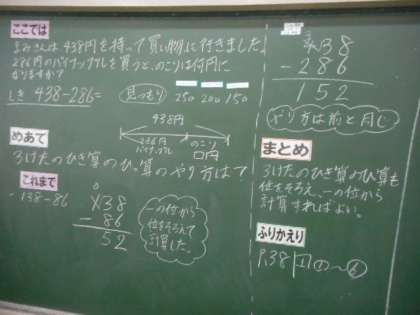 ここでは
まみさんは438円を持って買い物に行きました。
286円のパイナップルを買うと、のこりは何円に
なりますか?
しき 438-286=
見つもり
250 200 150
438円
286円
パイナップル
のこり
□円
めあて
3けたのひき算のひっ算のやり方は?
これまで
・138-86
0
138
- 86
52
一の位から
位をそろえて
計算した。
3
438
- 286
152
やり方は前と同じ
まとめ
3けたのひき算のひっ算も
位をそろえ、一の位から
計算すればよい。
ふりかえり
P.38 1 ①~⑥